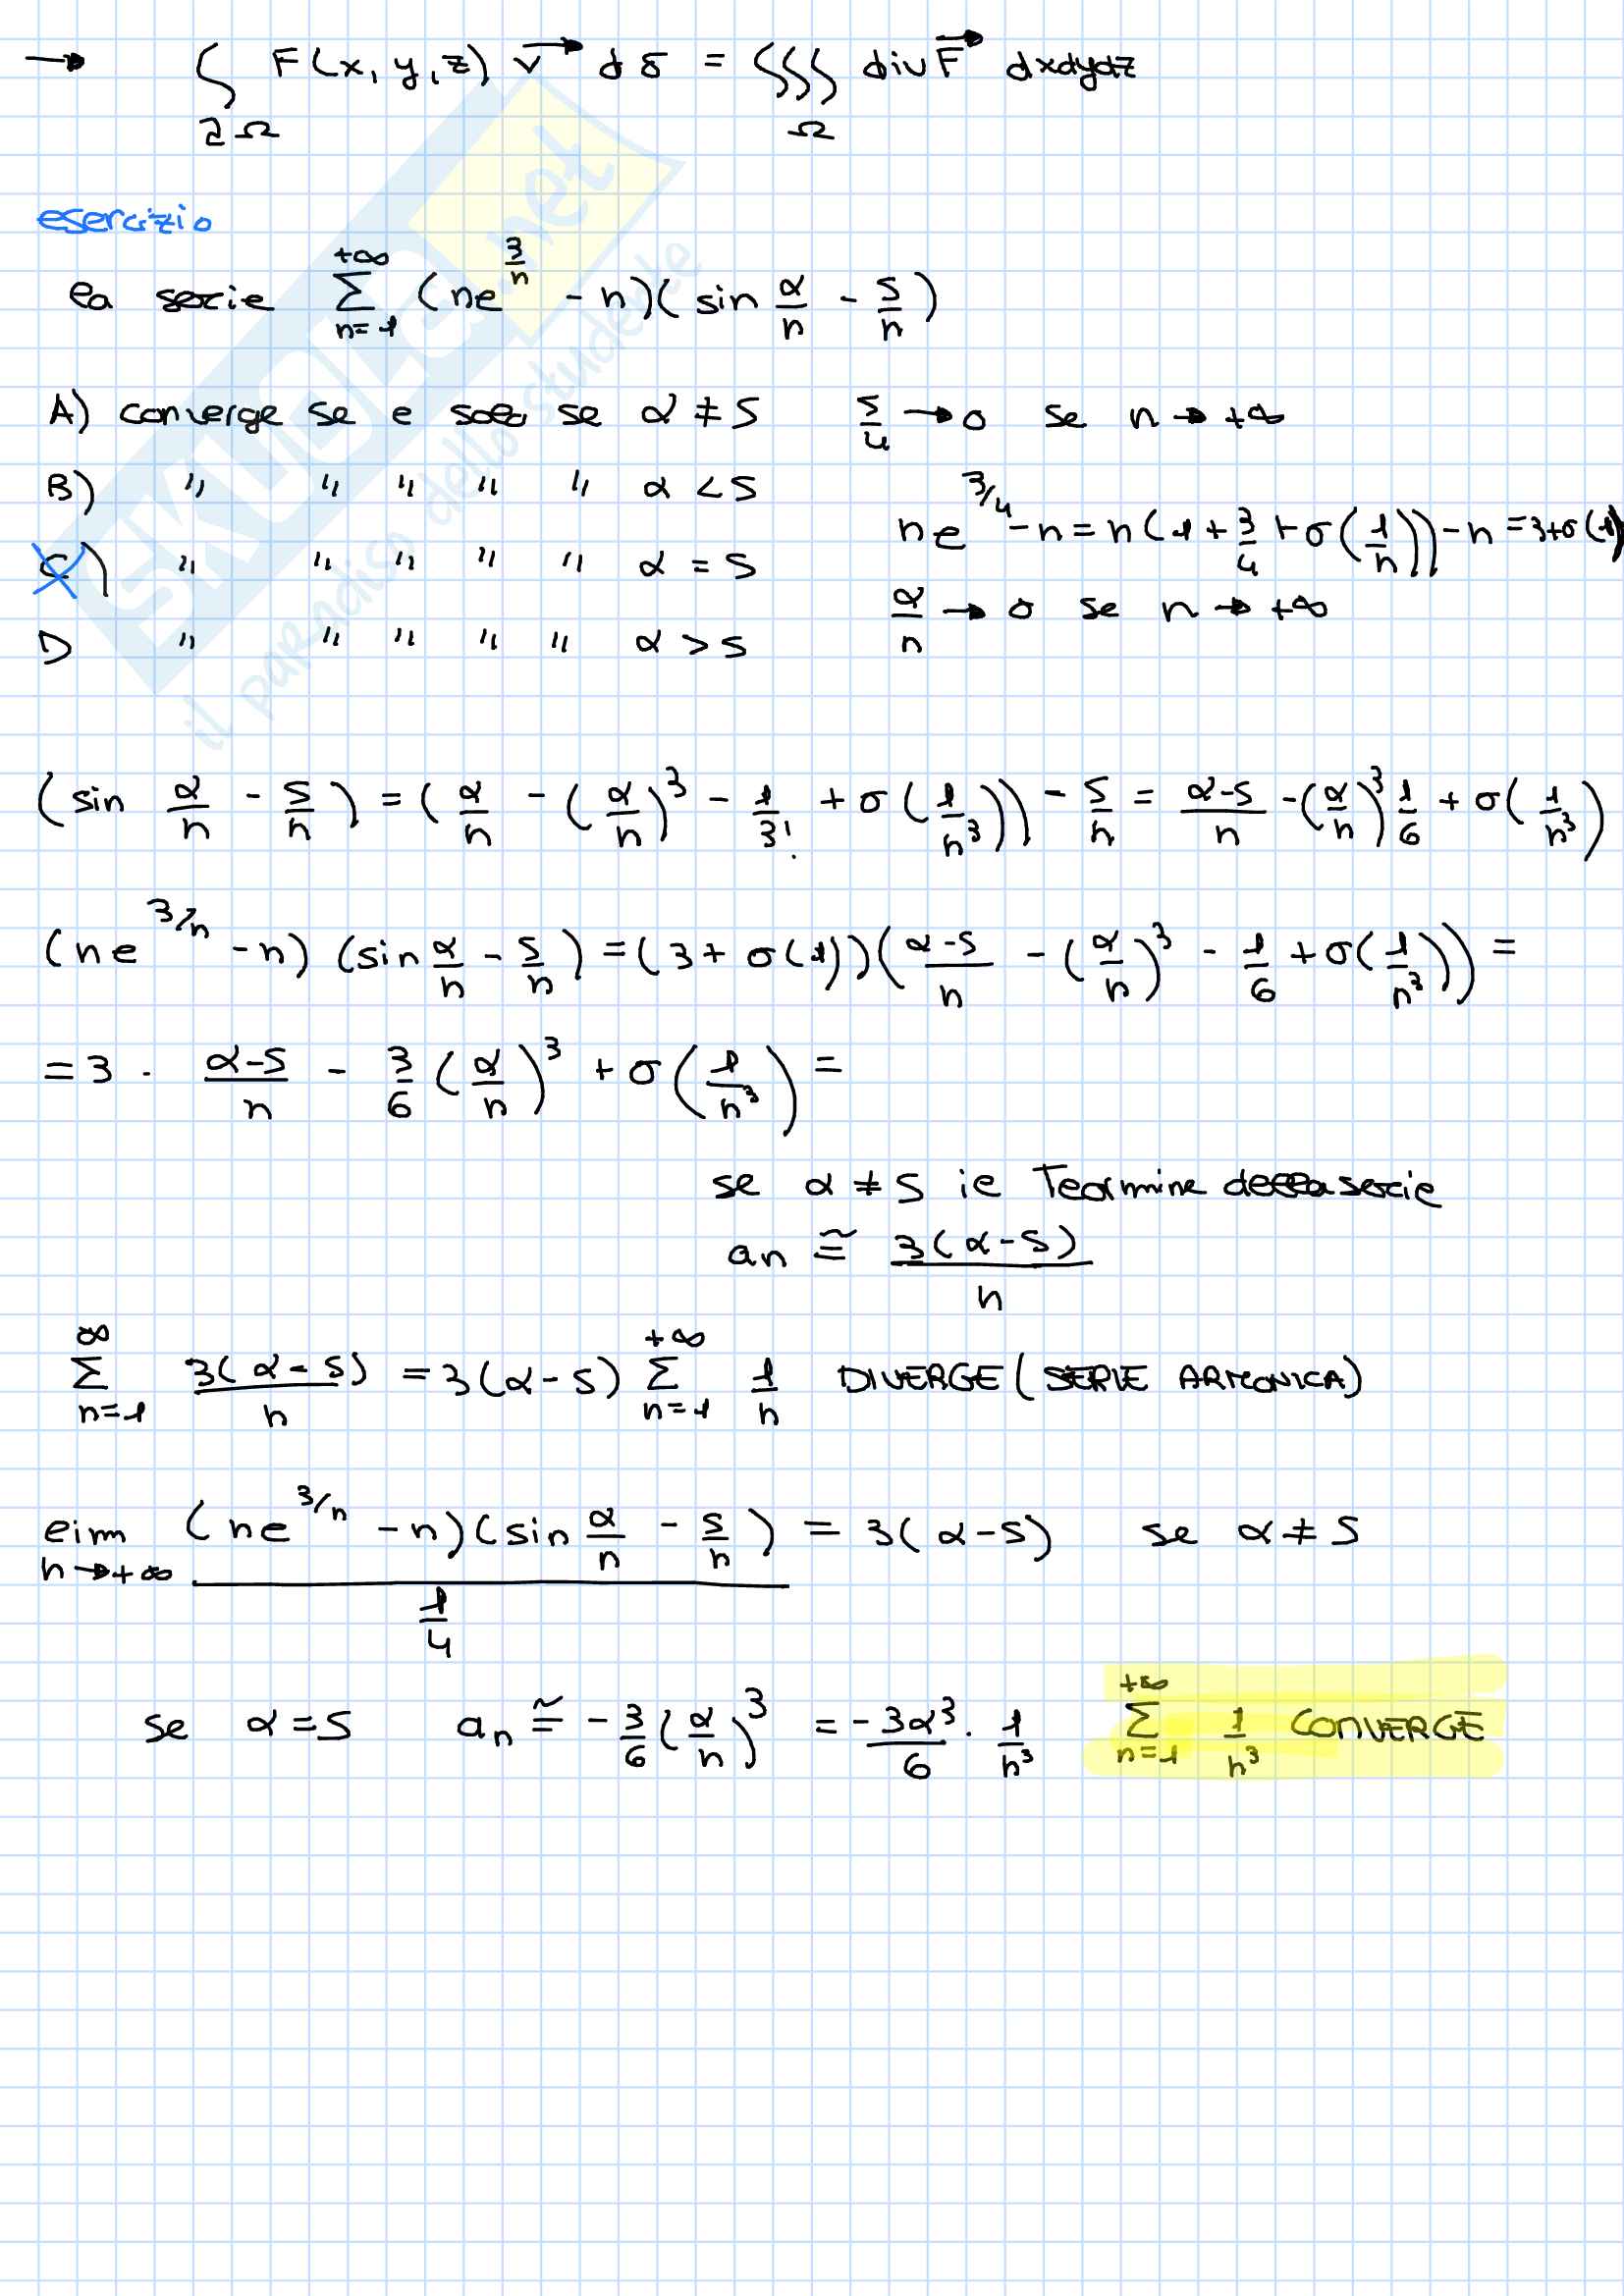 → ∫∂Ω F(x, y, z) v⃗ dδ = ∫∫∫Ω div F⃗ dxdydz
esercizio
la serie Σ n=1 +∞ (ne^(3/n) - n)(sin α/n - 5/n)
A) converge se e solo se α ≠ 5
B) " " " " " α < 5
C) " " " " " α = 5
D " " " " " α > 5
5/4 → 0 se n → +∞
ne^(3/4) - n = n(1 + 3/4 + σ(1/n)) - n = 3 + σ(1)
α/n → 0 se n → +∞
(sin α/n - 5/n) = (α/n - (α/n)³ - 1/3! + σ(1/n³)) - 5/n = α-5/n - (α/n)³ 1/6 + σ(1/n³)
(ne^(3/n) - n) (sin α/n - 5/n) = (3 + σ(1))(α-5/n - (α/n)³ - 1/6 + σ(1/n³)) =
= 3 · α-5/n - 3/6 (α/n)³ + σ(1/n³) =
se α ≠ 5 il Termine della serie
an ≅ 3(α-5)/n
Σ n=1 ∞ 3(α-5)/n = 3(α-5) Σ n=1 +∞ 1/n DIVERGE (SERIE ARMONICA)
lim n→+∞ (ne^(3/n) - n)(sin α/n - 5/n) / 1/4 = 3(α-5) se α ≠ 5
se α = 5 an ≅ - 3/6 (α/n)³ = -3α³/6 · 1/n³ Σ n=1 +∞ 1/n³ CONVERGE
SKUOLA.net
il paradiso dello studente